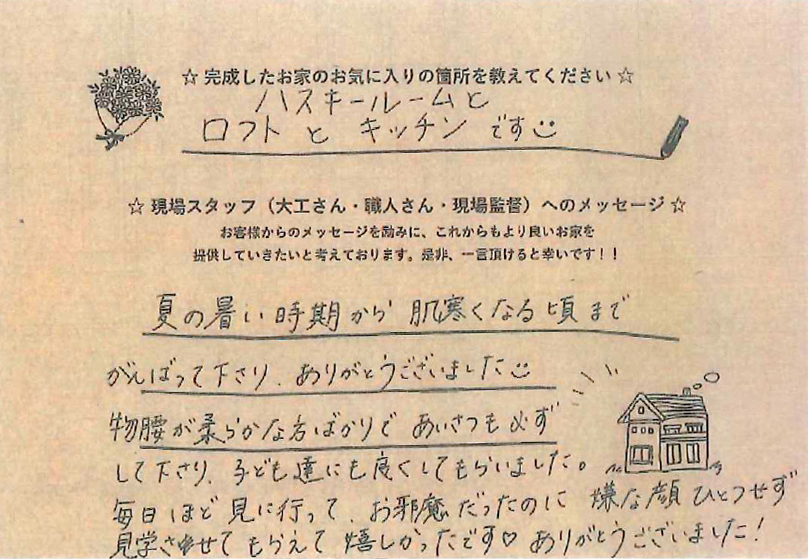 ☆ 完成したお家のお気に入りの箇所を教えてください ☆
ハスキールームと
ロフト と キッチン です
☆ 現場スタッフ（大工さん・職人さん・現場監督）へのメッセージ ☆
お客様からのメッセージを励みに、これからもより良いお家を
提供していきたいと考えております。是非、一言頂けると幸いです！！
夏の暑い時期から 肌寒くなる頃まで
がんばって下さり、ありがとうございました
物腰が柔らかな方ばかりで あいさつも必ず
して下さり、子ども達にも良くしてもらいました。
毎日ほど見に行って、お邪魔だったのに 嫌な顔ひとつせず
見学させてもらえて嬉しかったです♡ ありがとうございました！